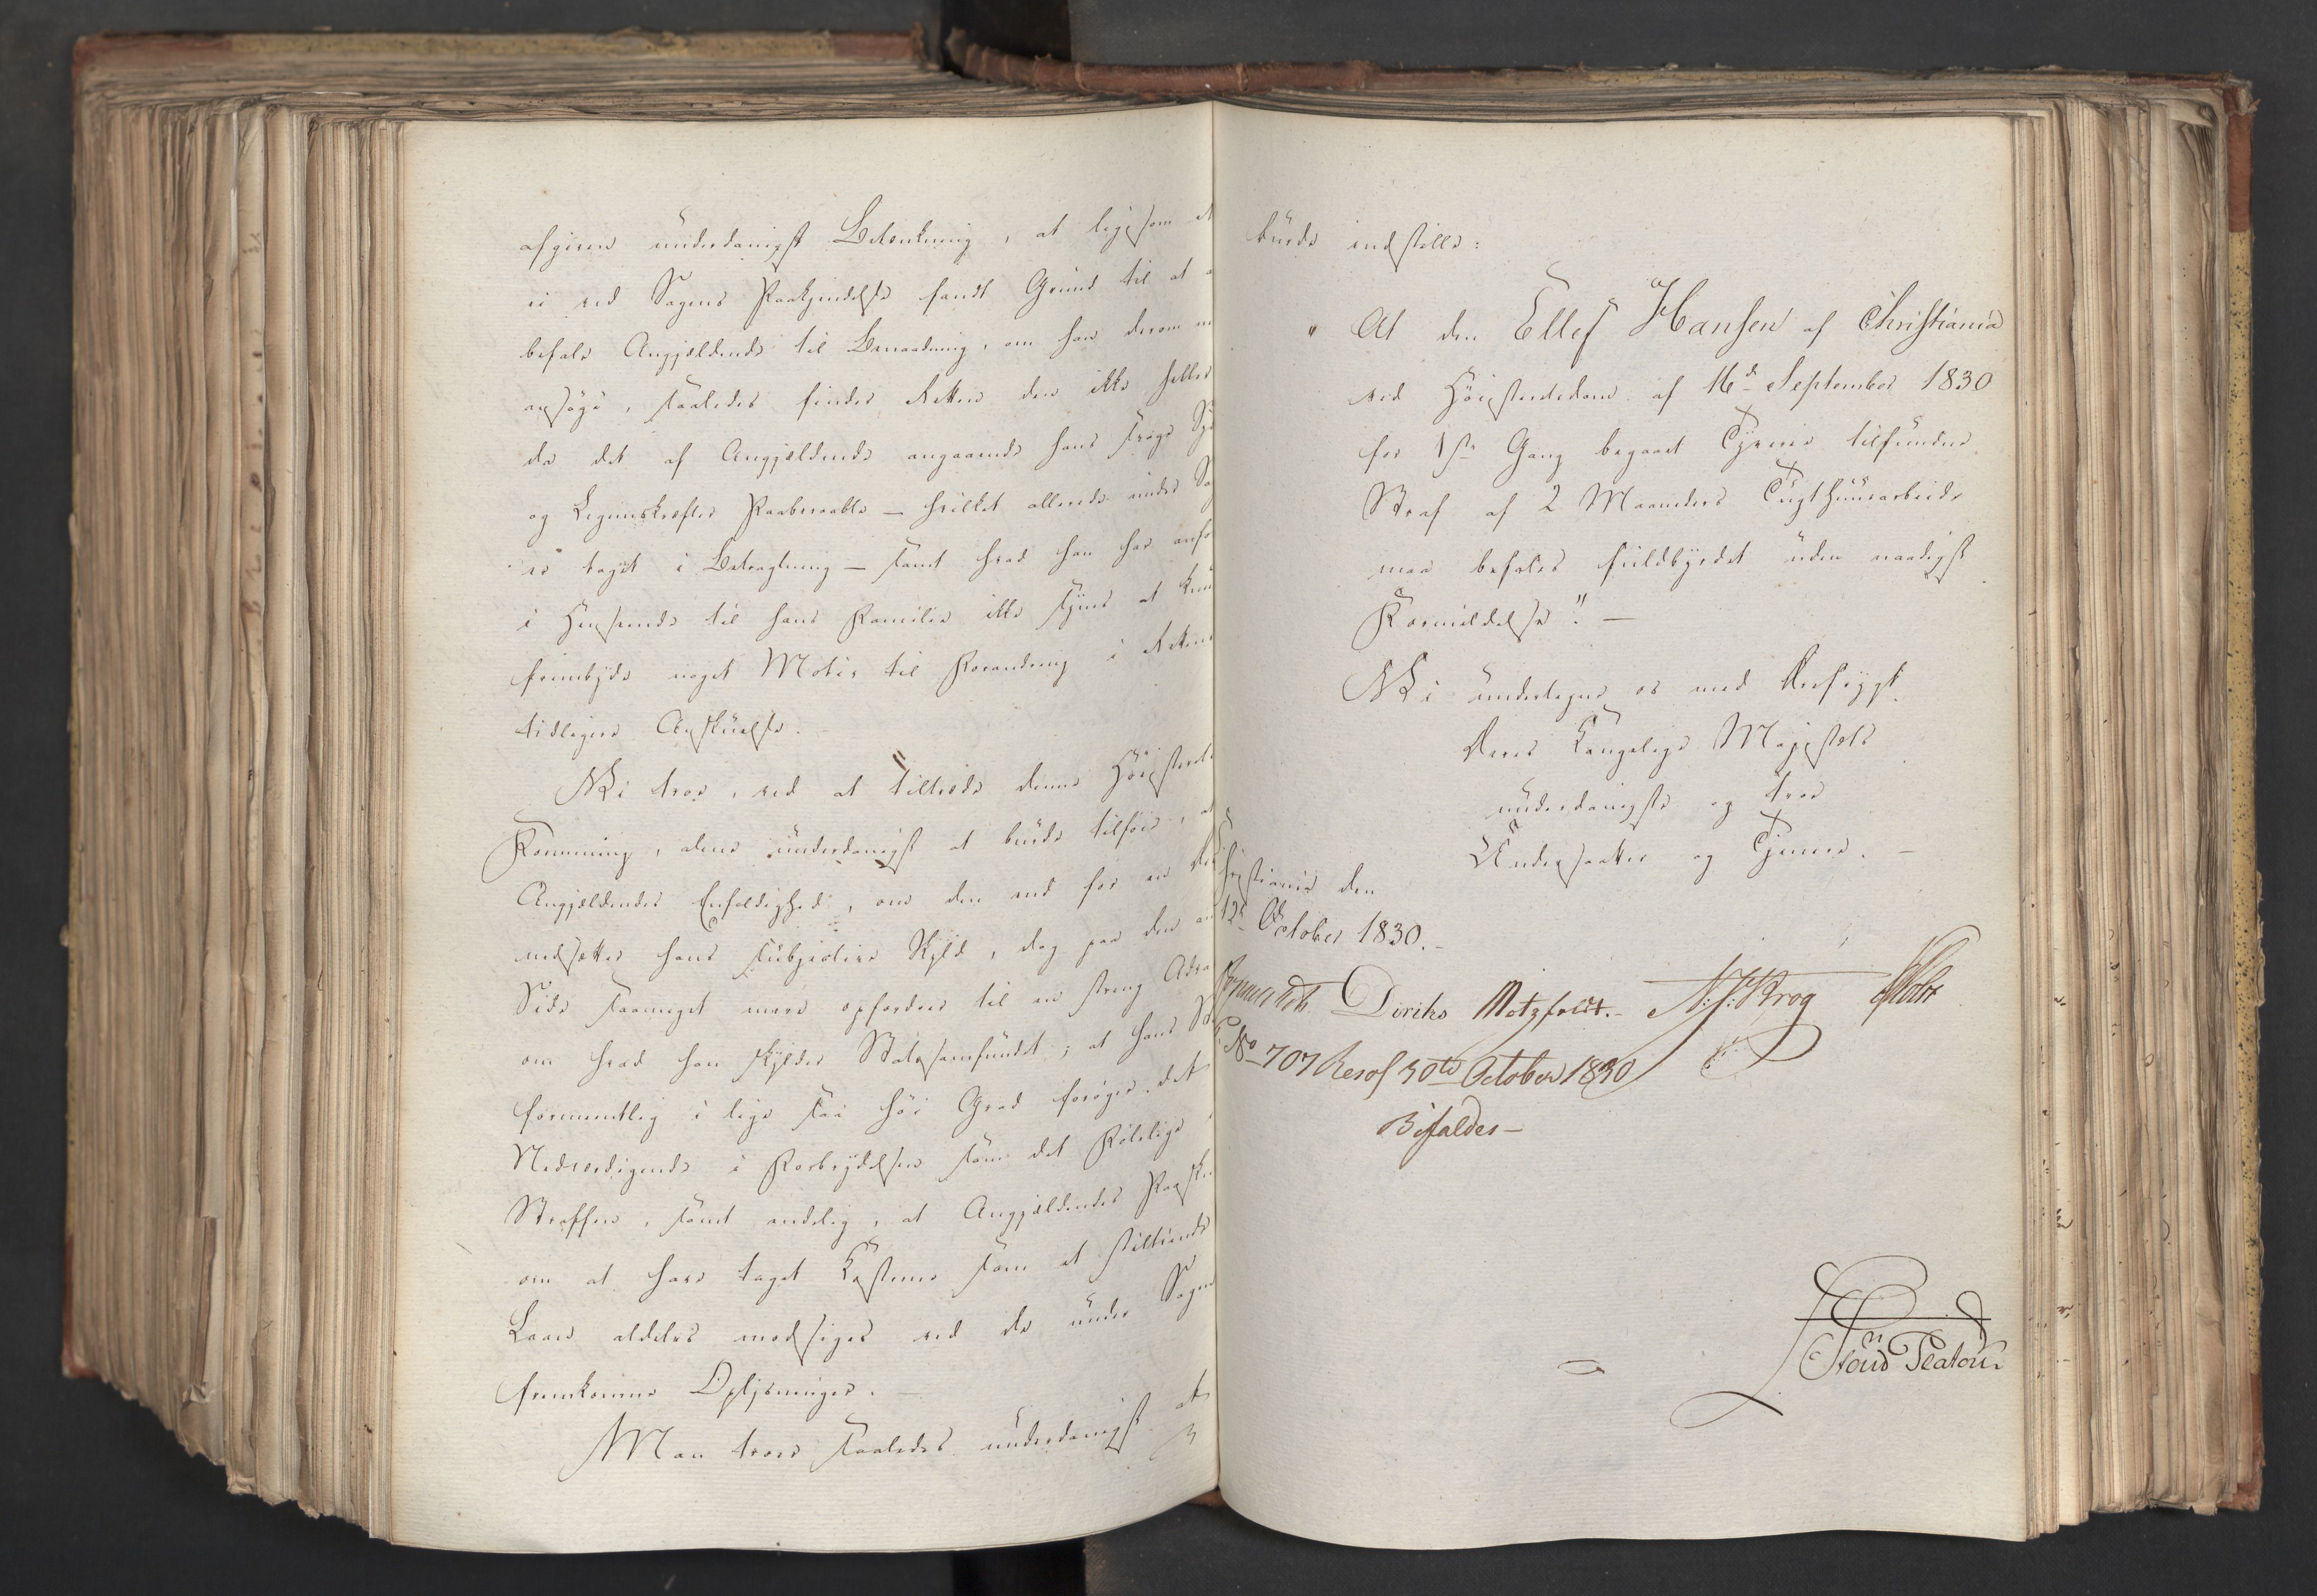 afgiven underdanigst Betænkning, at ligesom
ei ved Sagens Paakjendelse fandt Grund til at
befale Angjældende til Benaadning, om han derom
ansøgte, saaledes finder Retten den ikke heller
da det af Angjældende angaaende hans svage
og Legemskræfter Paaberaabte — hvilket allerede under
er taget i Betragtning — samt hvad han har
i Henseende til hans Familie ikke synes at
frembyde noget Motiv til Forandring i
tidligere Anskuelse.
Vi troe, ved at tiltræde denne
Formening, alene underdanigst at burde tilføie,
Angjældendes Eenfoldighed, om den end for en
nedsætter hans subjective Skyld, dog paa den
Side saameget mere opfordrer til en streng
om hvad han skylder Statssamfundet; at hans
formeentlig i lige saa høi Grad forøger det
Nedværdigende i Forbrydelsen som det Følelige i
Straffen, samt endelig, at Angjældendes
om at have taget Kosterne som et stiltiende
Laan aldeles modsiges ved de under
fremkomne Oplysninger. —
Man troer saaledes underdanigst at
burde indstille:
" At den Ellef Hansen af Christiania
ved Høiesteretsdom af 16de September 1830
for 1ste Gang begaaet Tyverie tilfundne
Straf af 2 Maaneders Tugthuusarbeide
maa befales fuldbyrdet uden naadigst
Formildelse". —
Vi undertegne os med Ærefrygt
Deres Kongelige Majestæts
underdanigste og troe
Undersaatter og Tjenere. —
Christiania den
12te October 1830. —
Diriks Motzfeldt. N.J:Krog
No 707 Resol 30te October 1830
Bifaldes —